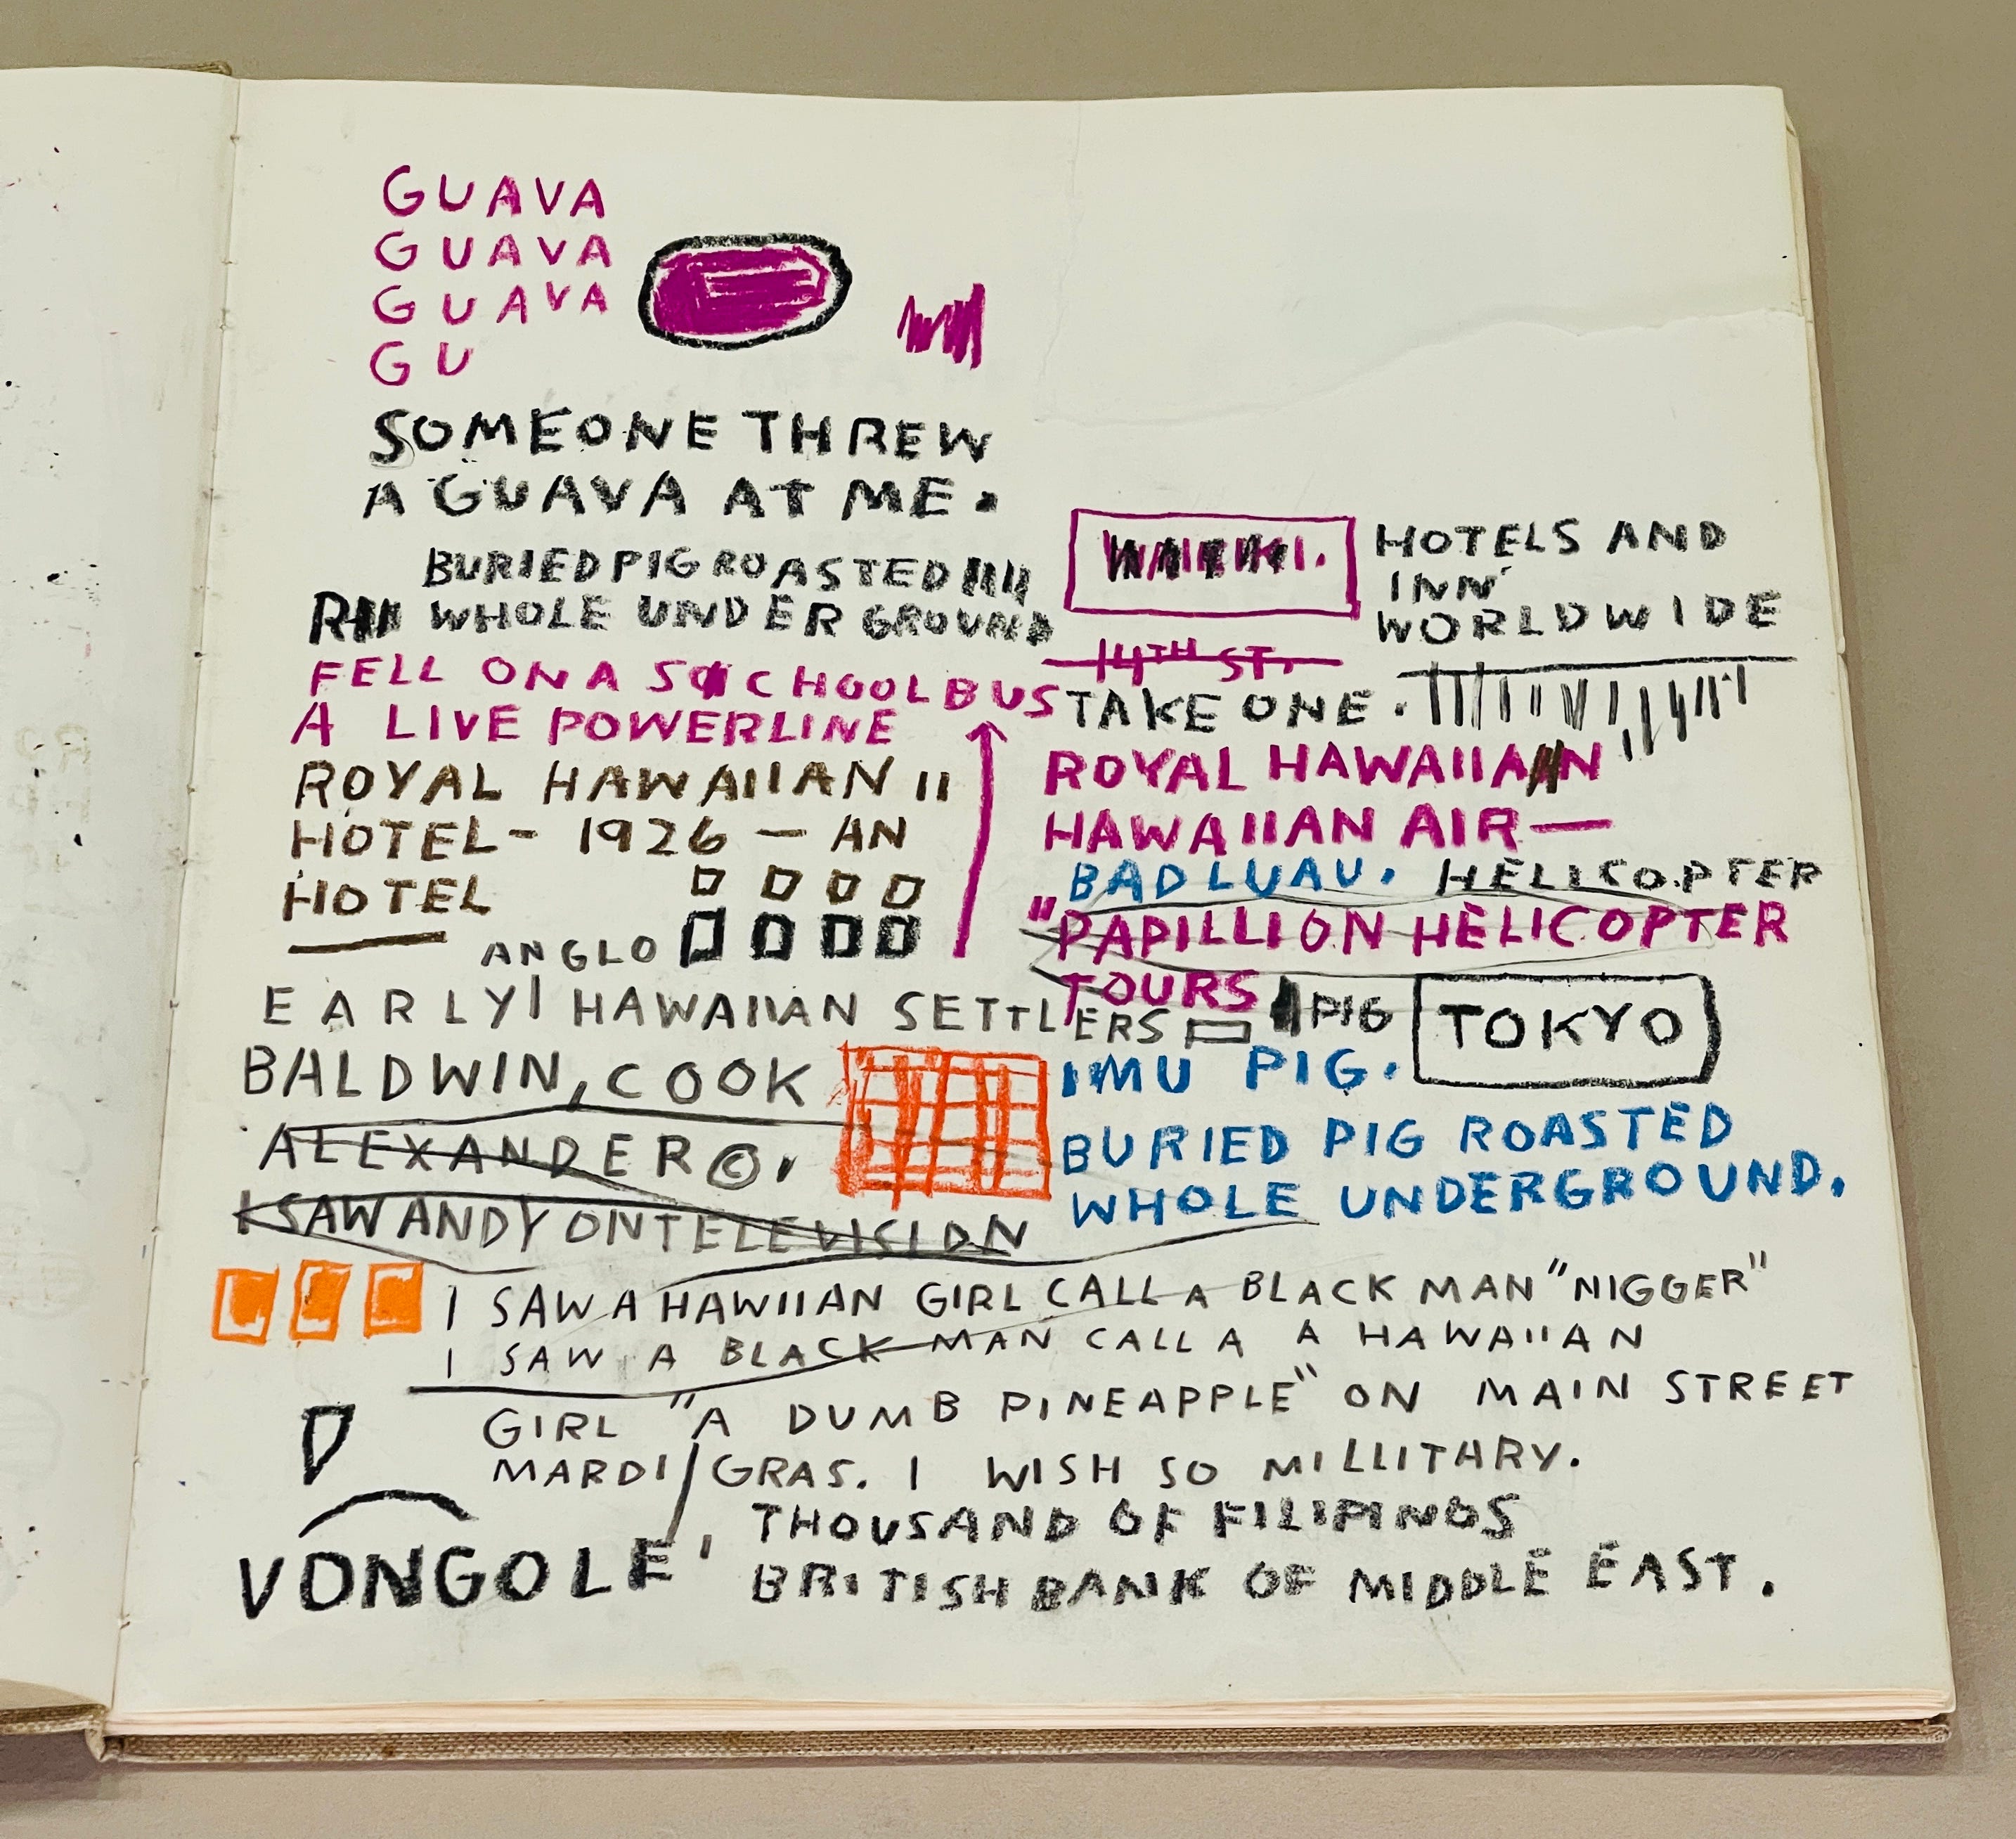 GUAVA
GUAVA
GUAVA
GU
SOMEONE THREW
A GUAVA AT ME.
BURIED PIG ROASTED
WHOLE UNDERGROUND
FELL ON A SCHOOL BUS
A LIVE POWERLINE
ROYAL HAWAIIAN II
HOTEL - 1926 - AN
HOTEL
ANGLO
EARLY HAWAIIAN SETTLERS
BALDWIN, COOK
ALEXANDER ©,
I SAW ANDY ON TELEVISION
HOTELS AND
INN
WORLDWIDE
14TH ST.
TAKE ONE.
ROYAL HAWAIIAN
HAWAIIAN AIR—
BAD LUAU. HELICOPTER
"PAPILLION HELICOPTER
TOURS
PIG TOKYO
IMU PIG.
BURIED PIG ROASTED
WHOLE UNDERGROUND.
I SAW A HAWIIAN GIRL CALL A BLACK MAN "NIGGER"
I SAW A BLACK MAN CALL A A HAWAIIAN
GIRL "A DUMB PINEAPPLE" ON MAIN STREET
MARDI GRAS. I WISH SO MILLITARY.
THOUSAND OF FILIPINOS
VONGOLE' BRITISH BANK OF MIDDLE EAST.